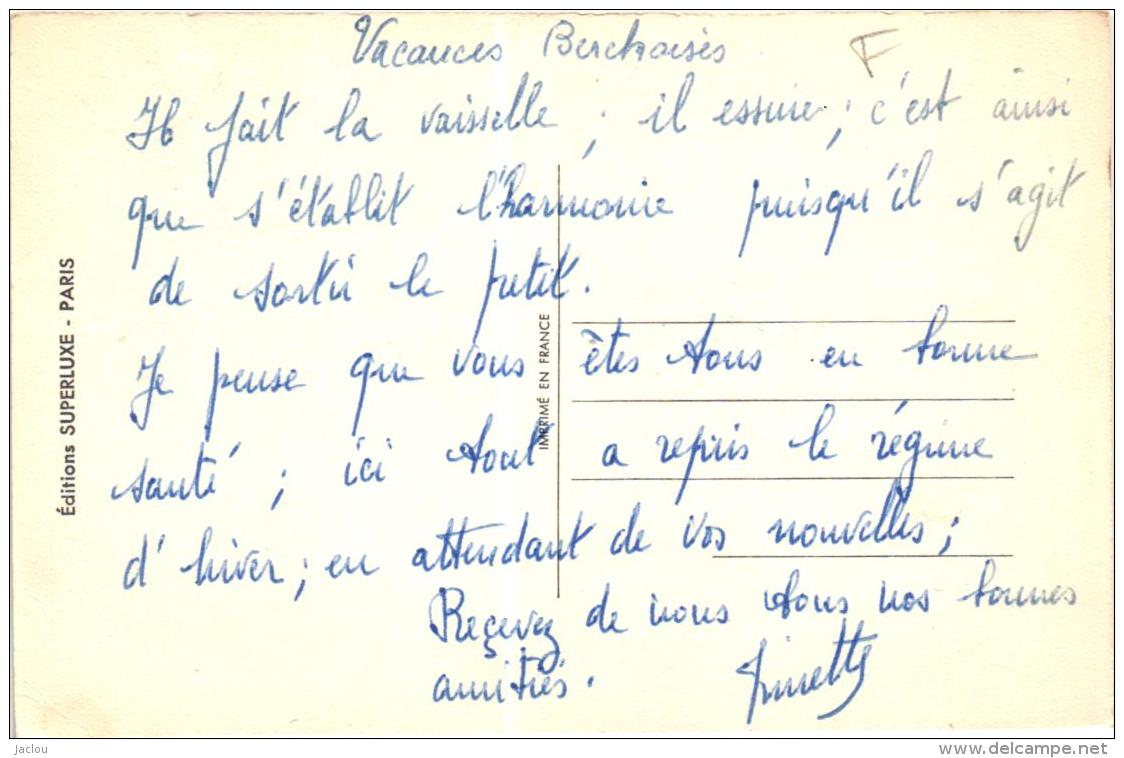 Vacances Berckoises
F
Il fait la vaisselle ; il essuie ; c'est ainsi
que s'établit l'harmonie puisqu'il s'agit
de sortir le petit.
Je pense que vous êtes tous en bonne
santé ; ici tout a repris le régime
d'hiver ; en attendant de vos nouvelles ;
Recevez de nous tous nos bonnes
amitiés. Ginette
Éditions SUPERLUXE - PARIS
IMPRIMÉ EN FRANCE
Jaclou
www.delcampe.net